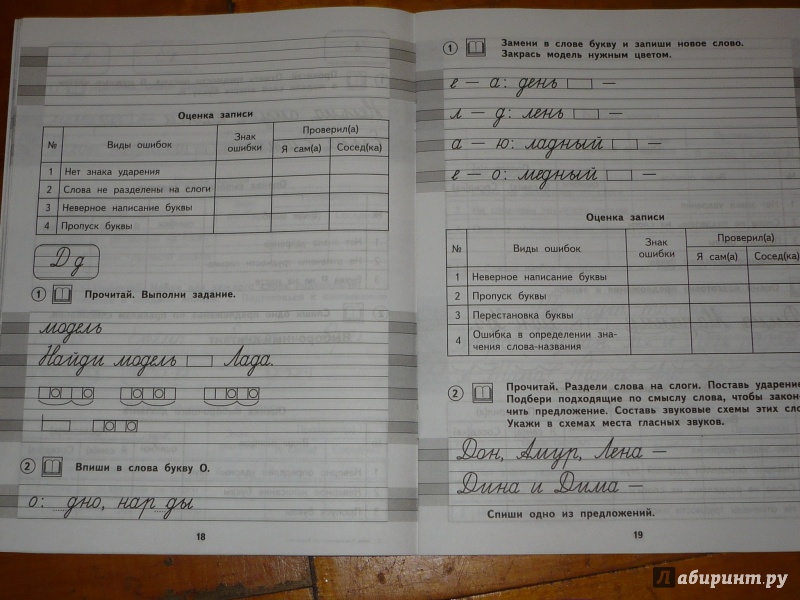 Оценка записи
№ Виды ошибок Знак ошибки Проверил(а) Я сам(а) Сосед(ка)
1 Нет знака ударения
2 Слова не разделены на слоги
3 Неверное написание буквы
4 Пропуск буквы
Д д
1 Прочитай. Выполни задание.
модель
Найди модель Лада.
2 Впиши в слова букву О.
о: дно, нар ды
18
1 Замени в слове букву и запиши новое слово.
Закрась модель нужным цветом.
е – а: день –
л – д: лень –
а – ю: ладный –
е – о: медный –
Оценка записи
№ Виды ошибок Знак ошибки Проверил(а) Я сам(а) Сосед(ка)
1 Неверное написание буквы
2 Пропуск буквы
3 Перестановка буквы
4 Ошибка в определении зна-
чения слова-названия
2 Прочитай. Раздели слова на слоги. Поставь ударение
Подбери подходящие по смыслу слова, чтобы закон-
чить предложение. Составь звуковые схемы этих сло
Укажи в схемах места гласных звуков.
Дон, Амур, Лена –
Дина и Дима –
Спиши одно из предложений.
19
Лабиринт.ру